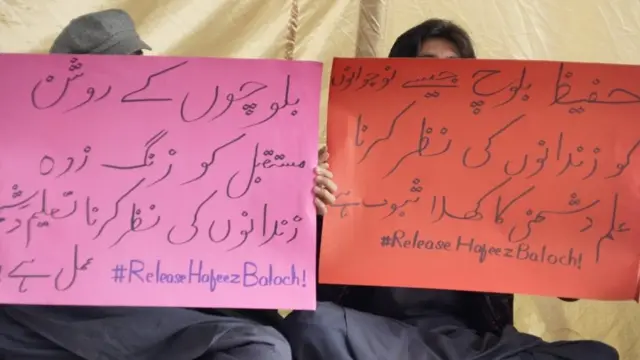 بلوچوں کے روشن
مستقبل کو زنگ زدہ
زندانوں کی نظر کرنا تعلیم
عمل ہے
#ReleaseHafeezBaloch!
حفیظ بلوچ جیسے نوجوانوں
کو زندانوں کی نظر کرنا
علم دشمنی کا کھلا ثبوت ہے
#ReleaseHafeezBaloch!